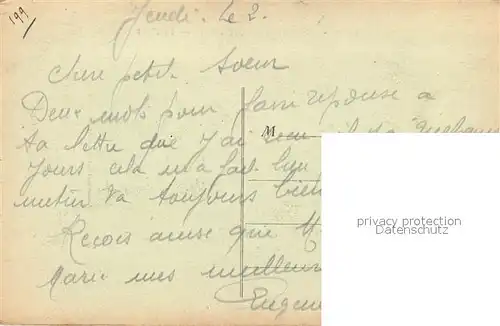 199
Jeudi. Le 2.
Chere petite Soeur
Deux mots pour faire reponse a
ta lettre que j'ai recu il y a quelques
M
jours cela m'a fait bien
metier va toujours bien
Reçois ainsi que
Marie mes meilleurs
Eugene
privacy protection
Datenschutz